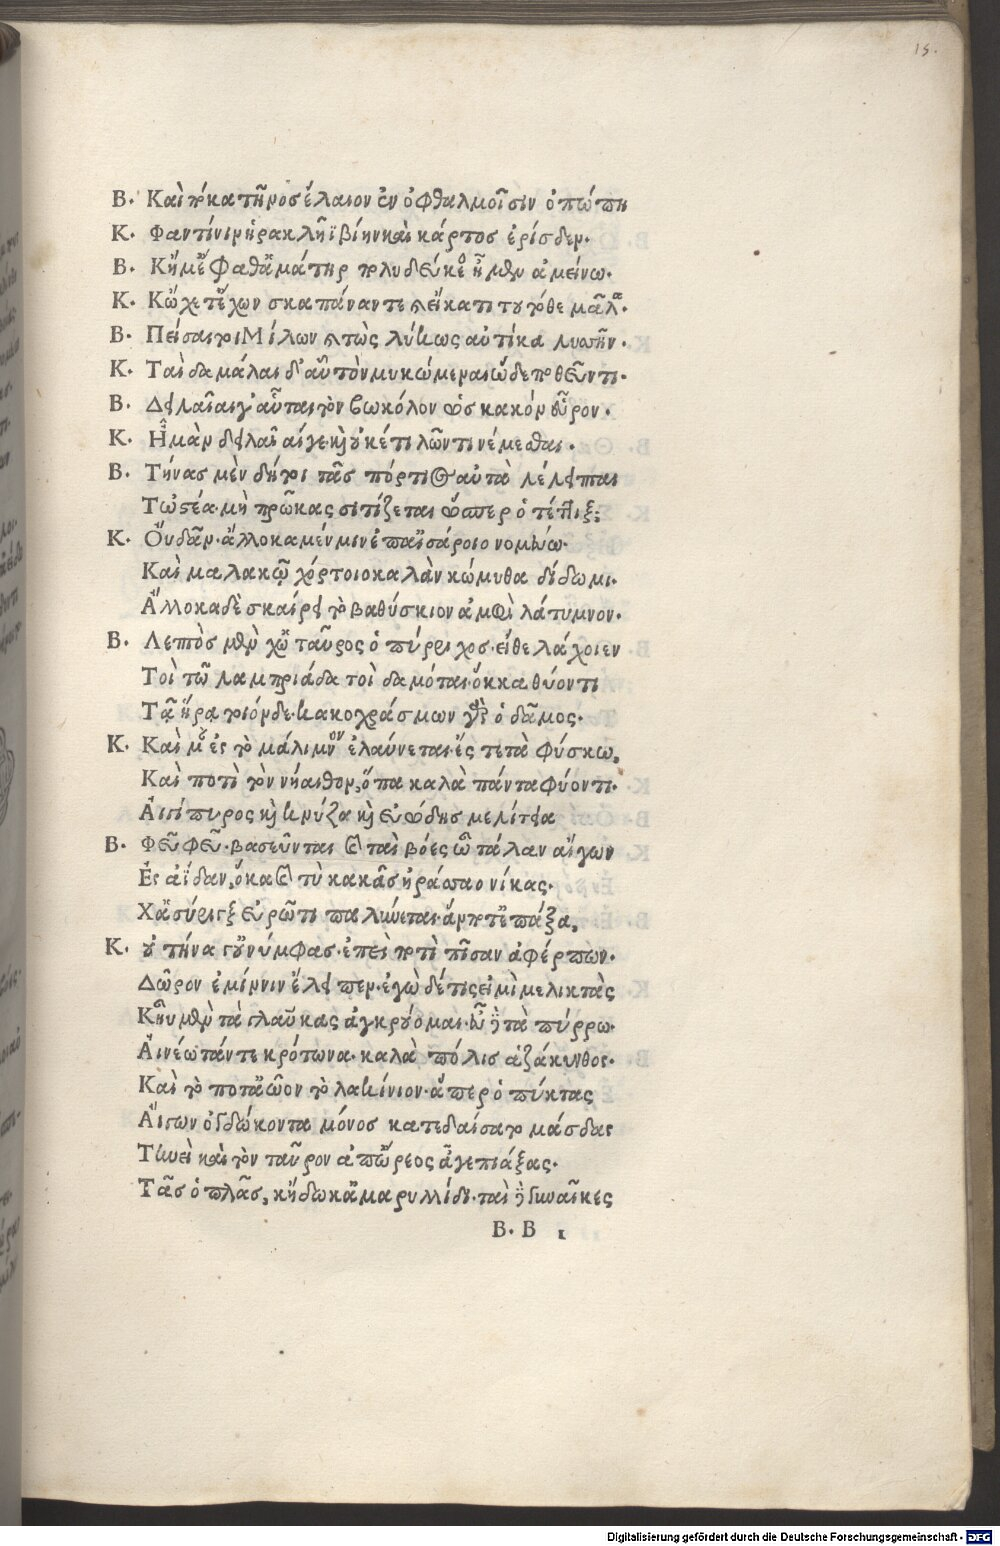 15.
Β. Καὶ πόκα τῆνος ἔλαιον ἐν ὀφθαλμοῖσιν ὀπώπη
Κ. Φαντί νιν ἡρακλῆϊ βίην καὶ κάρτος ἐρίσδεν.
Β. Κἤμ' ἔφαθ' ἁ μάτηρ πολυδεύκεος ἦμεν ἀμείνω.
Κ. Κᾤχετ' ἔχων σκαπάναν τε καὶ εἴκατι τουτόθε μᾶλα.
Β. Πείσαι τοι Μίλων καὶ τὼς λύκως αὐτίκα λυσσῆν.
Κ. Ταὶ δαμάλαι δ' αὐτὸν μυκώμεναι ὧδε ποθεῦντι.
Β. Δειλαῖαι γ' αὗται τὸν βωκόλον ὡς κακὸν εὗρον.
Κ. Ἦ μὰν δειλαῖαί γε. καὶ οὐκέτι λῶντι νέμεσθαι.
Β. Τήνας μὲν δή τοι τᾶς πόρτιος αὐτὰ λέλειπται
Τὠστέα. μὴ πρῶκας σιτίζεται ὥσπερ ὁ τέττιξ;
Κ. Οὔ δᾶν. ἄλλοκα μέν μιν ἐπ' αἰσάροιο νομεύω.
Καὶ μαλακῶ χόρτοιο καλὰν κώμυθα δίδωμι.
Ἄλλοκα δὲ σκαίρει τὸ βαθύσκιον ἀμφὶ λάτυμνον.
Β. Λεπτὸς μὲν χὠ ταῦρος ὁ πύρριχος. εἴθε λάχοιεν
Τοὶ τῶ λαμπριάδα τοὶ δαμόται ὄκκα θύοντι
Τᾷ ἥρᾳ τοιόνδε. κακοχράσμων γὰρ ὁ δᾶμος.
Κ. Καὶ μὰν ἐς τὸ μάλιμνον ἐλαύνεται. ἔς τε τὰ φύσκω,
Καὶ ποτὶ τὸν νήαιθον, ὅπα καλὰ πάντα φύοντι.
Αἰγίπυρος καὶ κνύζα καὶ εὐώδης μελίτεια
Β. Φεῦ φεῦ. βασεῦνται καὶ ταὶ βόες ὦ τάλαν αἴγων
Ἐς ἀΐδαν, ὅκα καὶ τὺ κακᾶς ἠράσσαο νίκας.
Χἁ σύριγξ εὐρῶτι παλύνεται. ἅν ποτ' ἐπάξα,
Κ. οὐ τήνα γ' οὐ νύμφας. ἐπεὶ ποτὶ πῖσαν ἀφέρπων.
Δῶρον ἐμίν νιν ἔλειπεν. ἐγὼ δέ τις εἰμὶ μελικτὰς
Κἠυ μὲν τὰ γλαύκας ἀγκρούομαι. εὖ δὲ τὰ πύρρω.
Αἰνέω τάν τε κρότωνα. καλὰ πόλις ἁ ζάκυνθος.
Καὶ τὸ ποταῷον τὸ λακίνιον. ᾇπερ ὁ πύκτας
Αἴγων ὀγδώκοντα μόνος κατεδαίσατο μάσδας
Τηνεὶ καὶ τὸν ταῦρον ἀπ' ὤρεος ἆγε πιάξας.
Τᾶς ὁπλᾶς, κἤδωκ' ἀμαρυλλίδι. ταὶ δὲ γυναῖκες
Β. Β 1
Digitalisierung gefördert durch die Deutsche Forschungsgemeinschaft - DFG